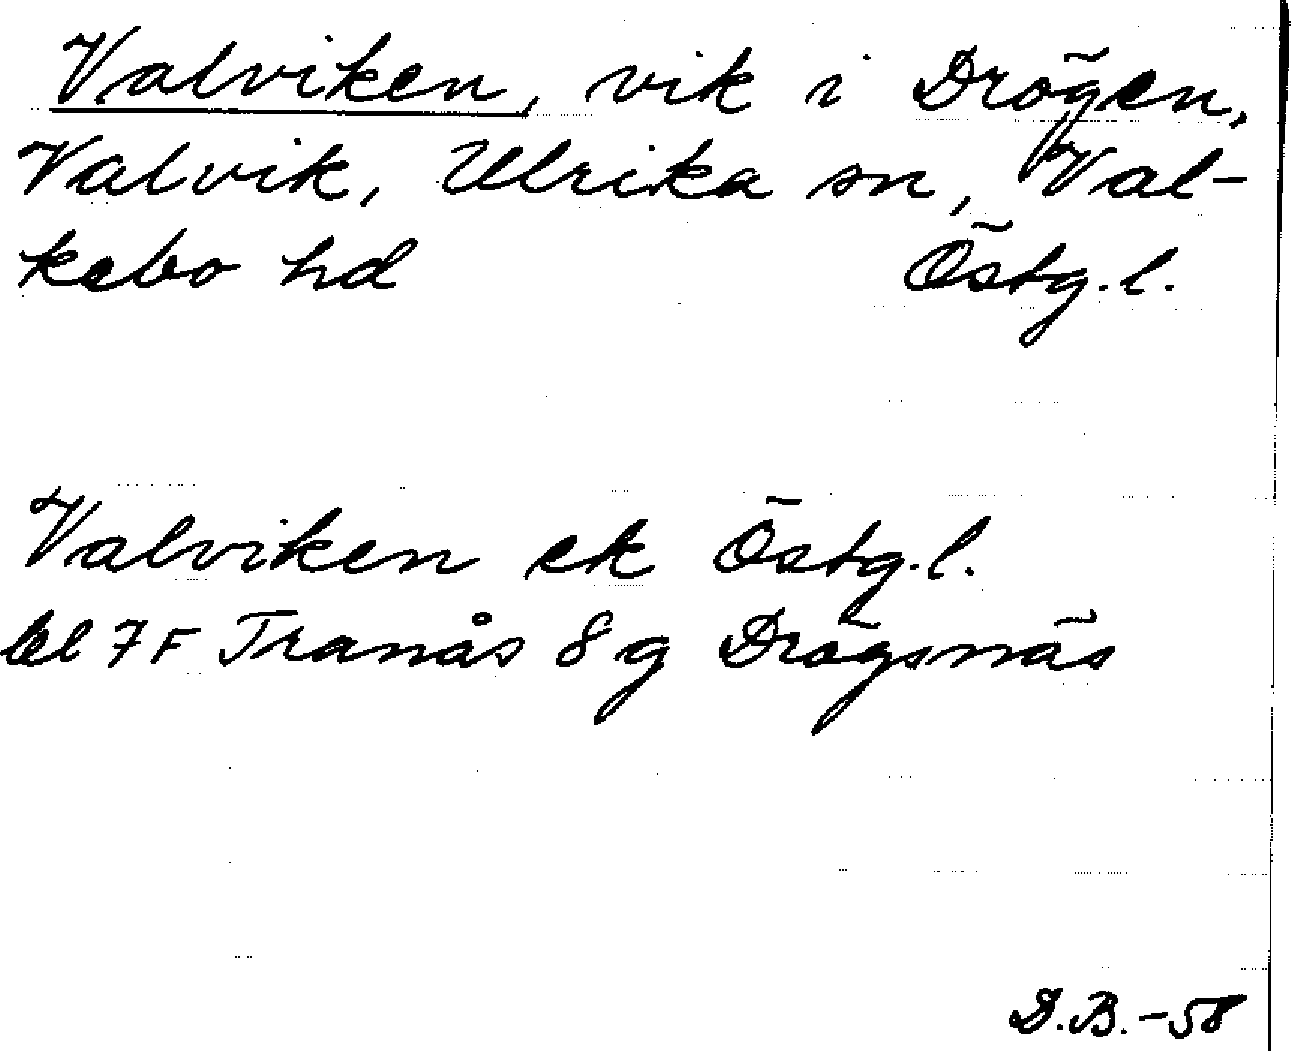 Valviken, vik i Drögen,
Valvik, Ulrika sn, Val-
kebo hd Östg.l.
Valviken ek Östg.l.
bl 7F Tranås 8g Drögsnäs
D.B.-58